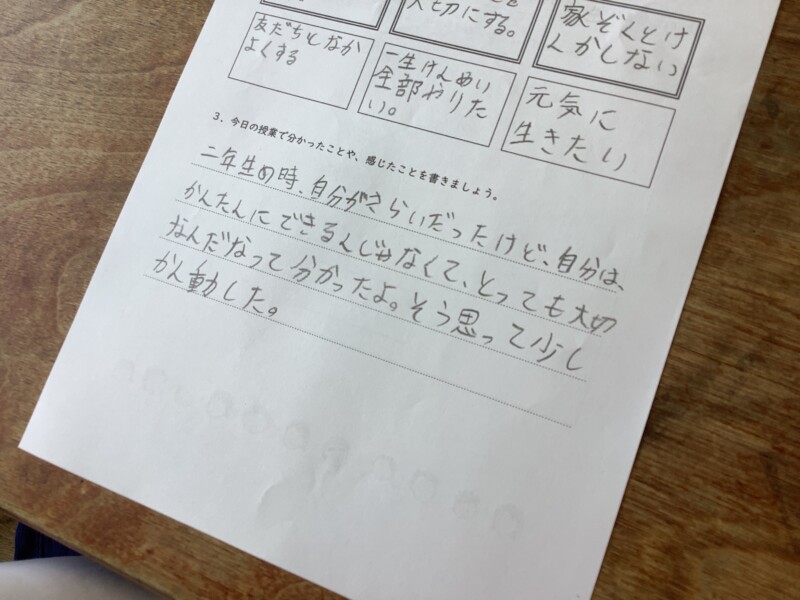 大切にする。
家ぞくとけ
んかしない
友だちとなか
よくする
一生けんめい
全部やりた
い。
元気に
生きたい
3．今日の授業で分かったことや、感じたことを書きましょう。
二年生の時、自分がきらいだったけど、自分は、
かんたんにできるんじゃなくて、とっても大切
なんだなって分かったよ。そう思って少し
かん動した。